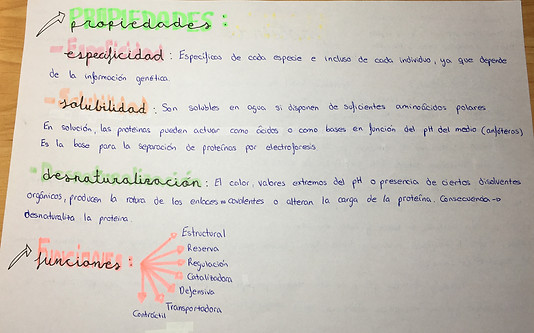 propiedades :
especificidad : Específicas de cada especie e incluso de cada individuo, ya que depende
de la información genética.
solubilidad : Son solubles en agua si disponen de suficientes aminoácidos polares
En solución, las proteínas pueden actuar como ácidos o como bases en función del pH del medio (anfóteros)
Es la base para la separación de proteínas por electroforesis
desnaturalización : El calor, valores extremos del pH o presencia de ciertos disolventes
orgánicos, producen la rotura de los enlaces no covalentes o alteran la carga de la proteína. Consecuencia →
desnaturaliza la proteína.
funciones :
Estructural
Reserva
Regulación
Catalizadora
Defensiva
Transportadora
Contráctil